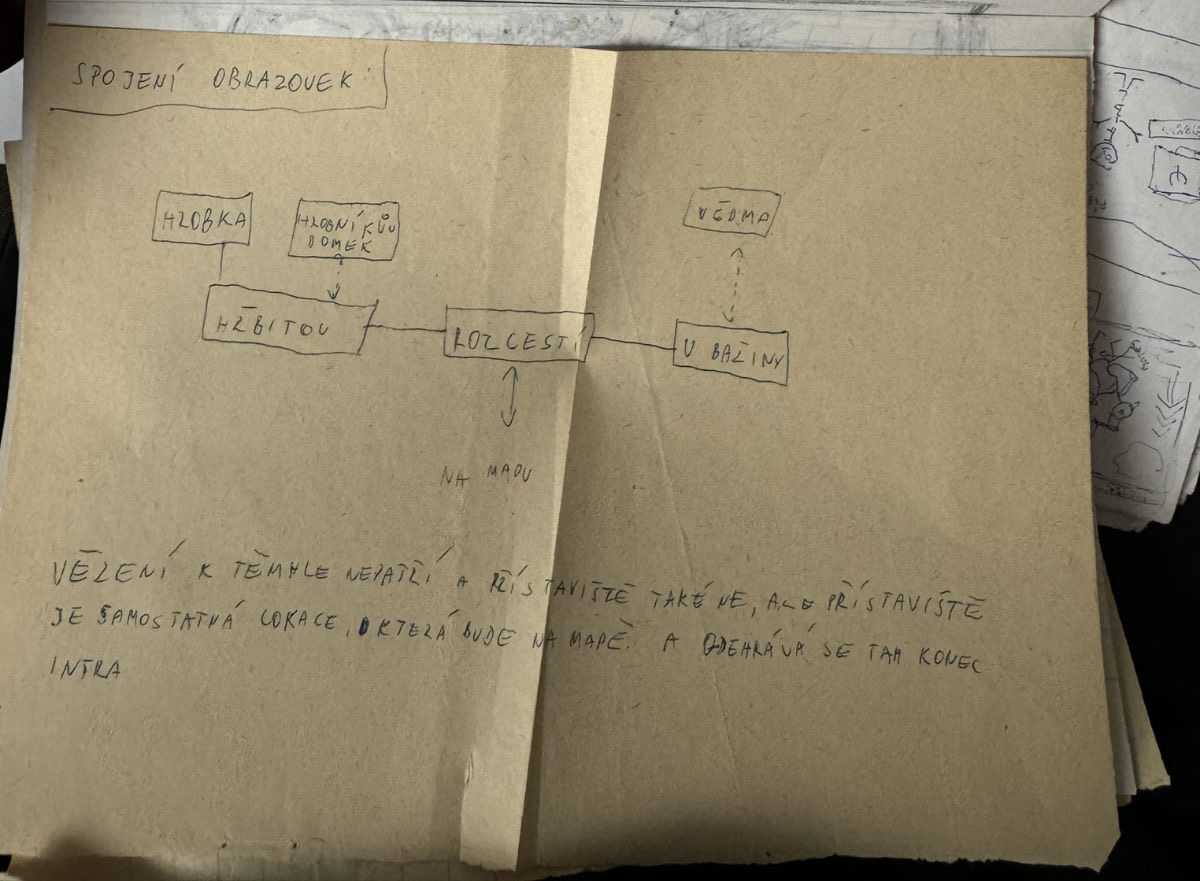 SPOJENÍ OBRAZOVEK
HROBKA
HROBNÍKŮV
DOMEK
VĚDMA
HŘBITOV
ROZCESTÍ
U BAŽINY
NA MAPU
VĚZENÍ K TĚMHLE NEPATŘÍ A PŘÍSTAVIŠTĚ TAKÉ NE, ALE PŘÍSTAVIŠTĚ
JE SAMOSTATNÁ LOKACE, KTERÁ BUDE NA MAPĚ. A ODEHRÁVÁ SE TAM KONEC
INTRA